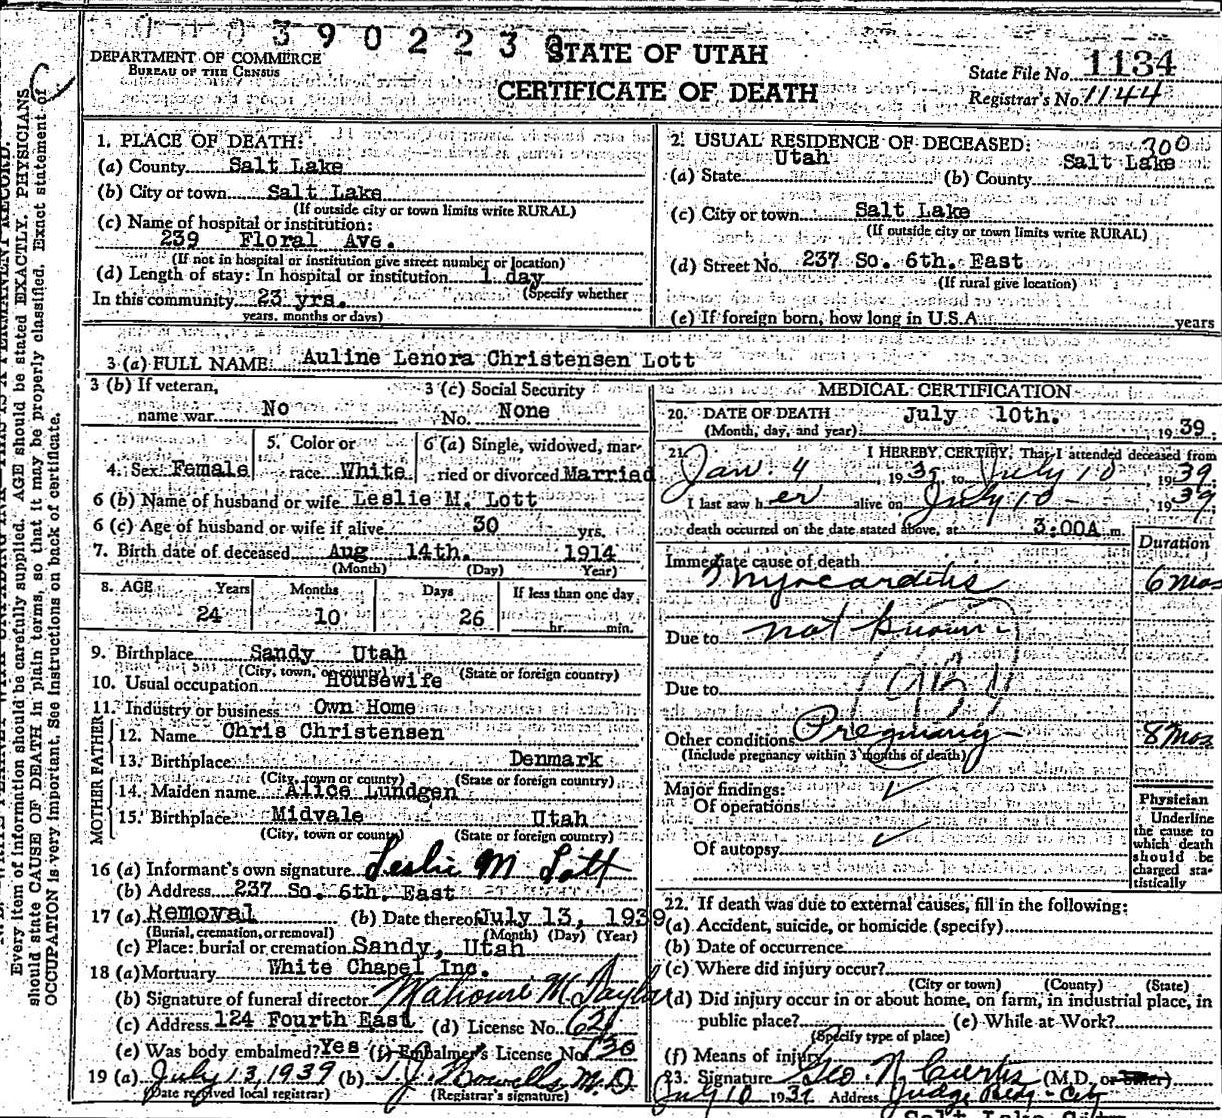 390223
DEPARTMENT OF COMMERCE
BUREAU OF THE CENSUS
STATE OF UTAH
CERTIFICATE OF DEATH
State File No. 1134
Registrar's No. 1144
Every item of information should be carefully supplied. AGE should be stated EXACTLY. PHYSICIANS
should state CAUSE OF DEATH in plain terms, so that it may be properly classified. Exact statement of
OCCUPATION is very important. See instructions on back of certificate.
1. PLACE OF DEATH:
(a) County Salt Lake
(b) City or town Salt Lake
(If outside city or town limits write RURAL)
(c) Name of hospital or institution:
239 Floral Ave.
(If not in hospital or institution give street number or location)
(d) Length of stay: In hospital or institution 1 day
(Specify whether
In this community 23 yrs.
years, months or days)
2. USUAL RESIDENCE OF DECEASED:
(a) State Utah (b) County Salt Lake
(c) City or town Salt Lake
(If outside city or town limits write RURAL)
(d) Street No. 237 So. 6th. East
(If rural give location)
(e) If foreign born, how long in U.S.A. years
3 (a) FULL NAME: Auline Lenora Christensen Lott
3 (b) If veteran, 3 (c) Social Security
name war No No. None
4. Sex Female 5. Color or race White 6 (a) Single, widowed, married or divorced Married
6 (b) Name of husband or wife Leslie M. Lott
6 (c) Age of husband or wife if alive 30 yrs.
7. Birth date of deceased Aug 14th. 1914
(Month) (Day) Year)
8. AGE Years Months Days If less than one day
24 10 26 hr. min.
9. Birthplace Sandy Utah
(City, town, or county) (State or foreign country)
10. Usual occupation Housewife
11. Industry or business Own Home
FATHER
12. Name Chris Christensen
13. Birthplace Denmark
(City, town or county) (State or foreign country)
MOTHER
14. Maiden name Alice Lundgen
15. Birthplace Midvale Utah
(City, town or county) (State or foreign country)
16 (a) Informant's own signature Leslie M Lott
(b) Address 237 So. 6th. East
17 (a) Removal (b) Date thereof July 13, 1939
(Burial, cremation, or removal) (Month) (Day) (Year)
(c) Place: burial or cremation Sandy, Utah
18 (a) Mortuary White Chapel Inc.
(b) Signature of funeral director
(c) Address 124 Fourth East (d) License No.
(e) Was body embalmed? Yes (f) Embalmer's License No.
19 (a) July 13, 1939 (b) M.D.
(Date received local registrar) (Registrar's signature)
MEDICAL CERTIFICATION
20. DATE OF DEATH July 10th. 1939.
(Month, day, and year)
21. I HEREBY CERTIFY: That I attended deceased from
Jan 4, 1939, to July 10, 1939.
I last saw her alive on July 10 - , 1939
death occurred on the date stated above, at 3:00A m.
Duration
Immediate cause of death
Myocarditis 6 mos
Due to not known
Due to
Other conditions Pregnancy 8 mos
(Include pregnancy within 3 months of death)
Major findings:
Of operations
Of autopsy
Physician
Underline
the cause to
which death
should be
charged sta-
tistically
22. If death was due to external causes, fill in the following:
(a) Accident, suicide, or homicide (specify)
(b) Date of occurrence
(c) Where did injury occur?
(City or town) (County) (State)
(d) Did injury occur in or about home, on farm, in industrial place, in
public place? (e) While at Work?
(Specify type of place)
(f) Means of injury
23. Signature Geo. N Curtis (M.D. or other)
July 10 1939 Address Judge Bldg - City